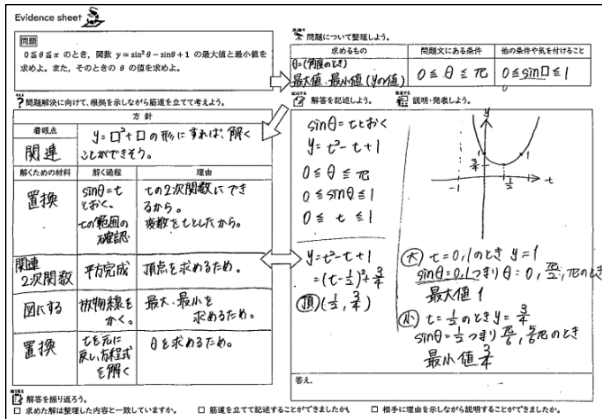 Evidence sheet
問題
0≦θ≦π のとき，関数 y=sin²θ−sinθ+1 の最大値と最小値を
求めよ。また，そのときの θ の値を求めよ。
問題について整理しよう。
求めるもの
問題文にある条件
他の条件や気を付けること
θ=(角度のとき)
最大値・最小値(yの値)
0≦θ≦π
0≦sin□≦1
?問題解決に向けて，根拠を示しながら筋道を立てて考えよう。
方針
着眼点
関連
y=□²+□の形にすれば、解く
ことができそう。
解くための材料
解く過程
理由
置換
sinθ=t
とおく。
tの範囲の
確認
tの2次関数にでき
るから。
変数をtとしたから。
関連
2次関数
平方完成
頂点を求めるため。
図にする
放物線を
かく。
最大、最小を
求めるため。
置換
tを元に
戻し、方程式
を解く
θを求めるため。
解答を記述しよう。
説明・発表しよう。
sinθ=tとおく
y=t²-t+1
0≦θ≦π
0≦sinθ≦1
0≦t≦1
y=t²-t+1
=(t-1/2)²+3/4
頂(1/2, 3/4)
y
1
3/4
-1
1/2
1
t
大 t=0,1のときy=1
sinθ=0,1つまりθ=0, π/2, πのとき
最大値 1
小 t=1/2のときy=3/4
sinθ=1/2つまりπ/6, 5/6πのとき
最小値 3/4
答え.
解答を振り返ろう。
□ 求めた解は整理した内容と一致していますか。
□ 筋道を立てて記述することができましたか
□ 相手に理由を示しながら説明することができましたか。